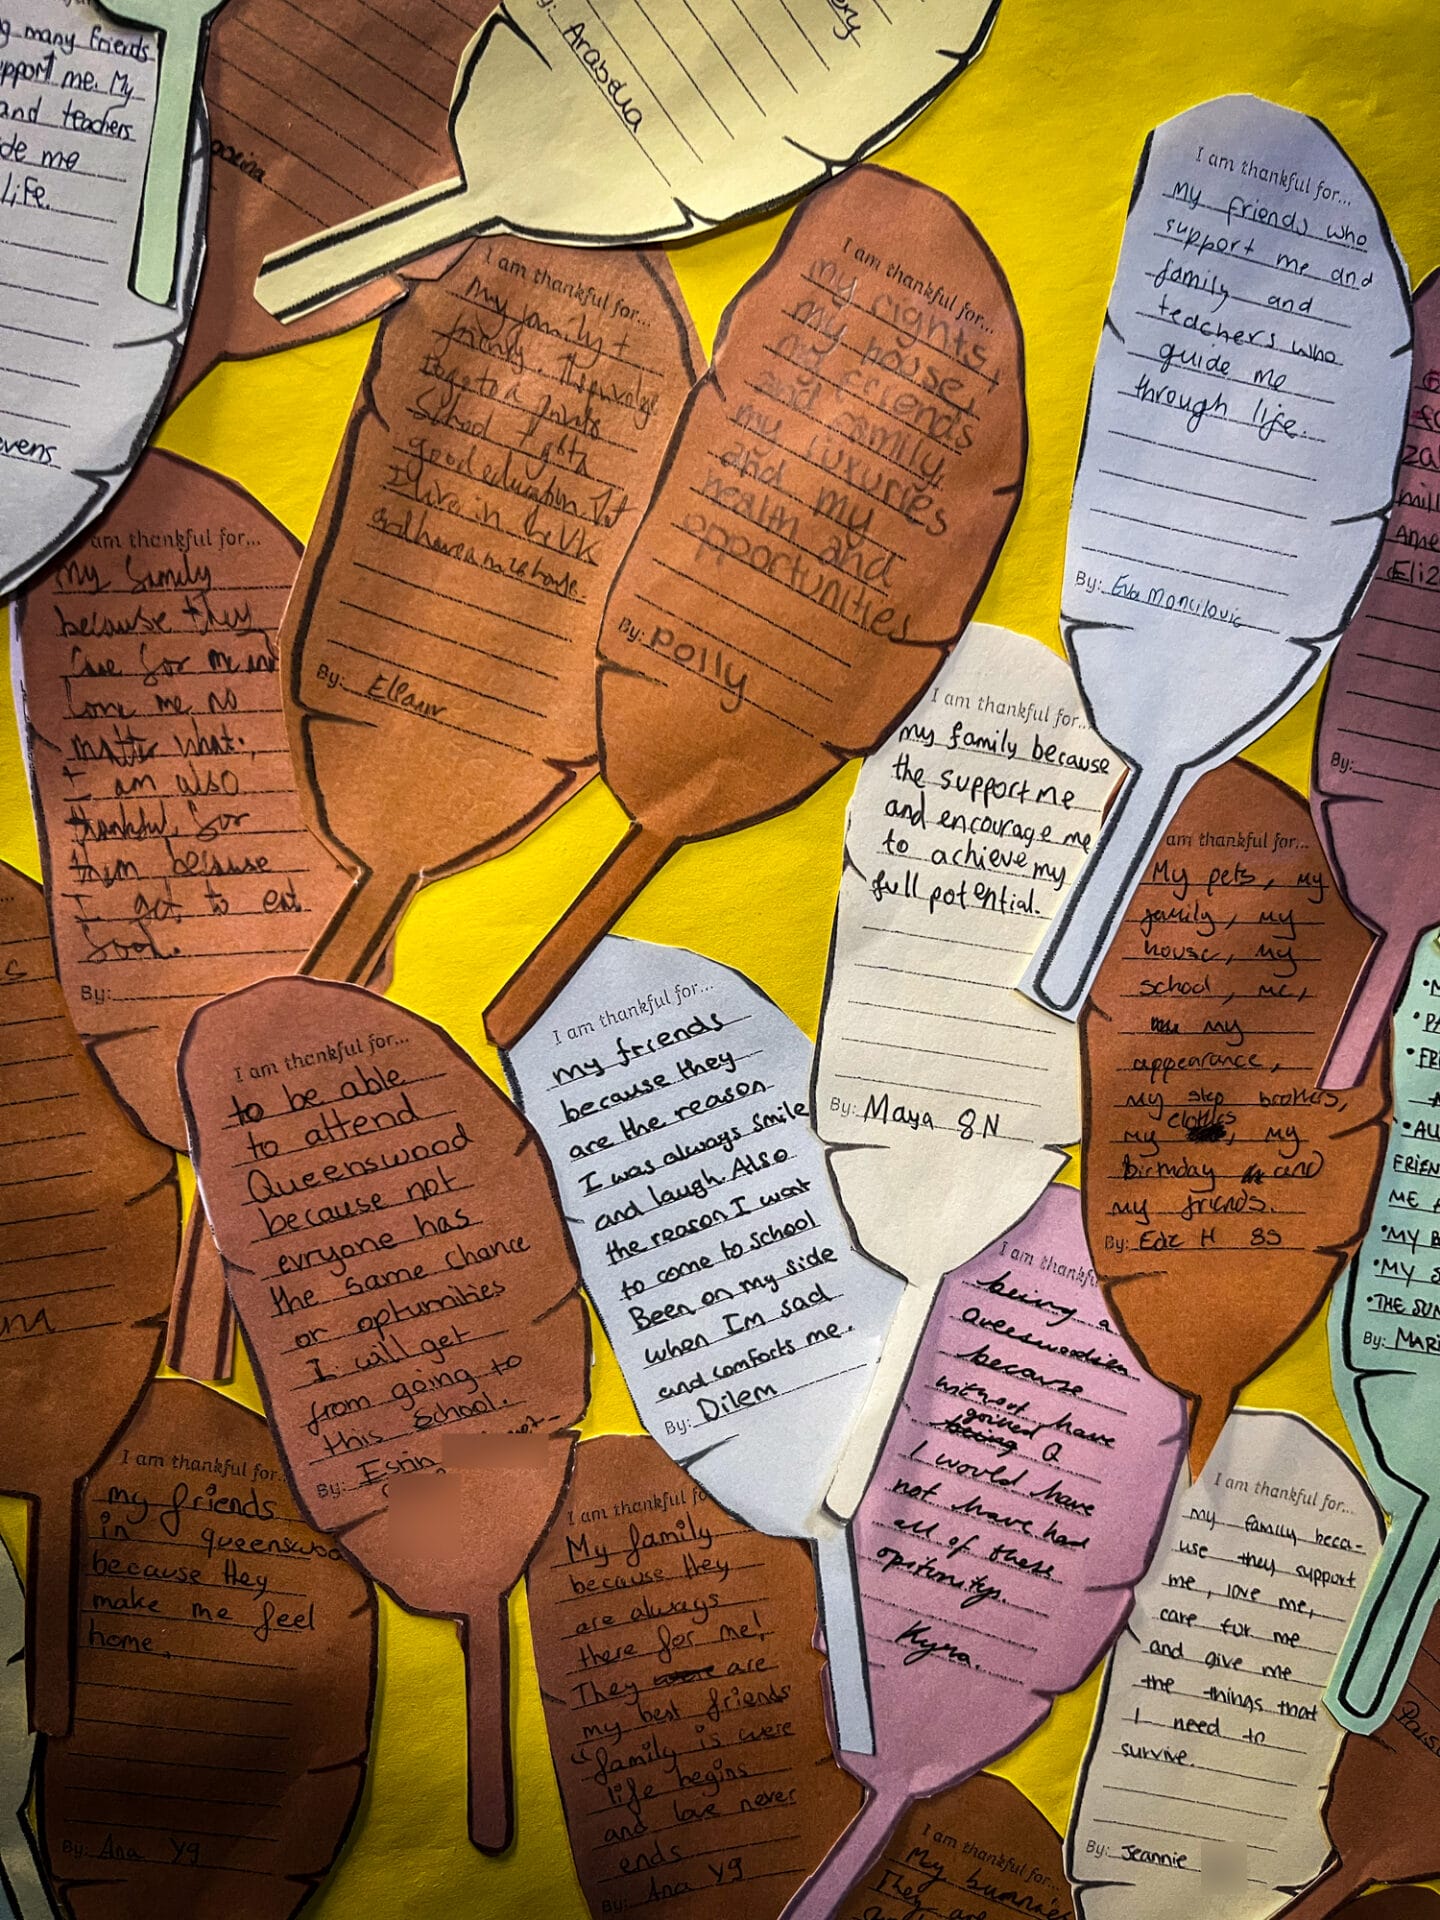 g many friends
upport me. My
and teachers
ide me
Life.
vens
By: Arabella
ery
I am thankful for...
my family +
friends.
good education. 
I live in the UK
and have a nice home.
By:
I am thankful for...
my rights,
my house,
my friends
and family,
my luxuries
and my
health and
opportunities
By: Polly
I am thankful for...
my friends who
support me and
family and
teachers who
guide me
through life.
By: Eva Moncilovic
am thankful for...
My family
because they
care for me and
love me no
matter what.
I am also
thankful for
them because
I get to eat
food.
By:
I am thankful for...
my family because
the support me
and encourage me
to achieve my
full potential.
By: Maya 8N
am thankful for...
My pets, my
family, my
house, my
school, me,
my
appearance,
my step brothers,
clothes
my , my
birthday and
my friends.
By: H 8S
I am thankful for...
to be able
to attend
Queenswood
because not
evryone has
the same chance
or optumities
I will get
from going to
this school.
By: Esrin
I am thankful for...
my friends
because they
are the reason
I was always smile
and laugh. Also
the reason I want
to come to school
Been on my side
when I'm sad
and comforts me.
By: Dilem
I am thankf
being a
Queenswoodien
because
without have
goined
being Q
I would have
not have had
all of these
opritunitys.
Kyra.
I am thankful for
my friends
in queenswoo
because they
make me feel
home.
By: Ana Y9
I am thankful fo
My family
because they
are always
there for me!
They are
my best friends
"family is were
life begins
and love never
ends
By: Ana Y9
I am thankful for...
my family beca-
use they support
me, love me,
care for me
and give me
the things that
I need to
survive.
By: Jeannie
I am thankful for...
My bunnies
They are
za
mill
Ame
Eliz
By:
• M
• PA
• FRI
• AU
FRIEN
ME
• MY B
• MY S
• THE SUN
By: MARI